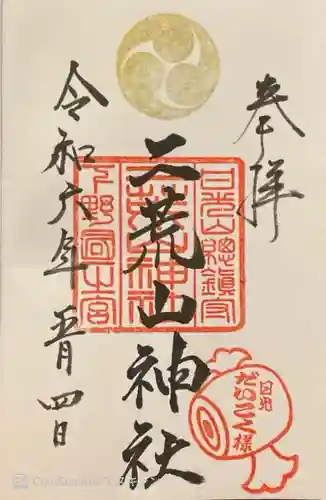 奉拝
日光山總鎮守
二荒山神社
下野國一之宮
令和六年五月四日
日光
だいこく様